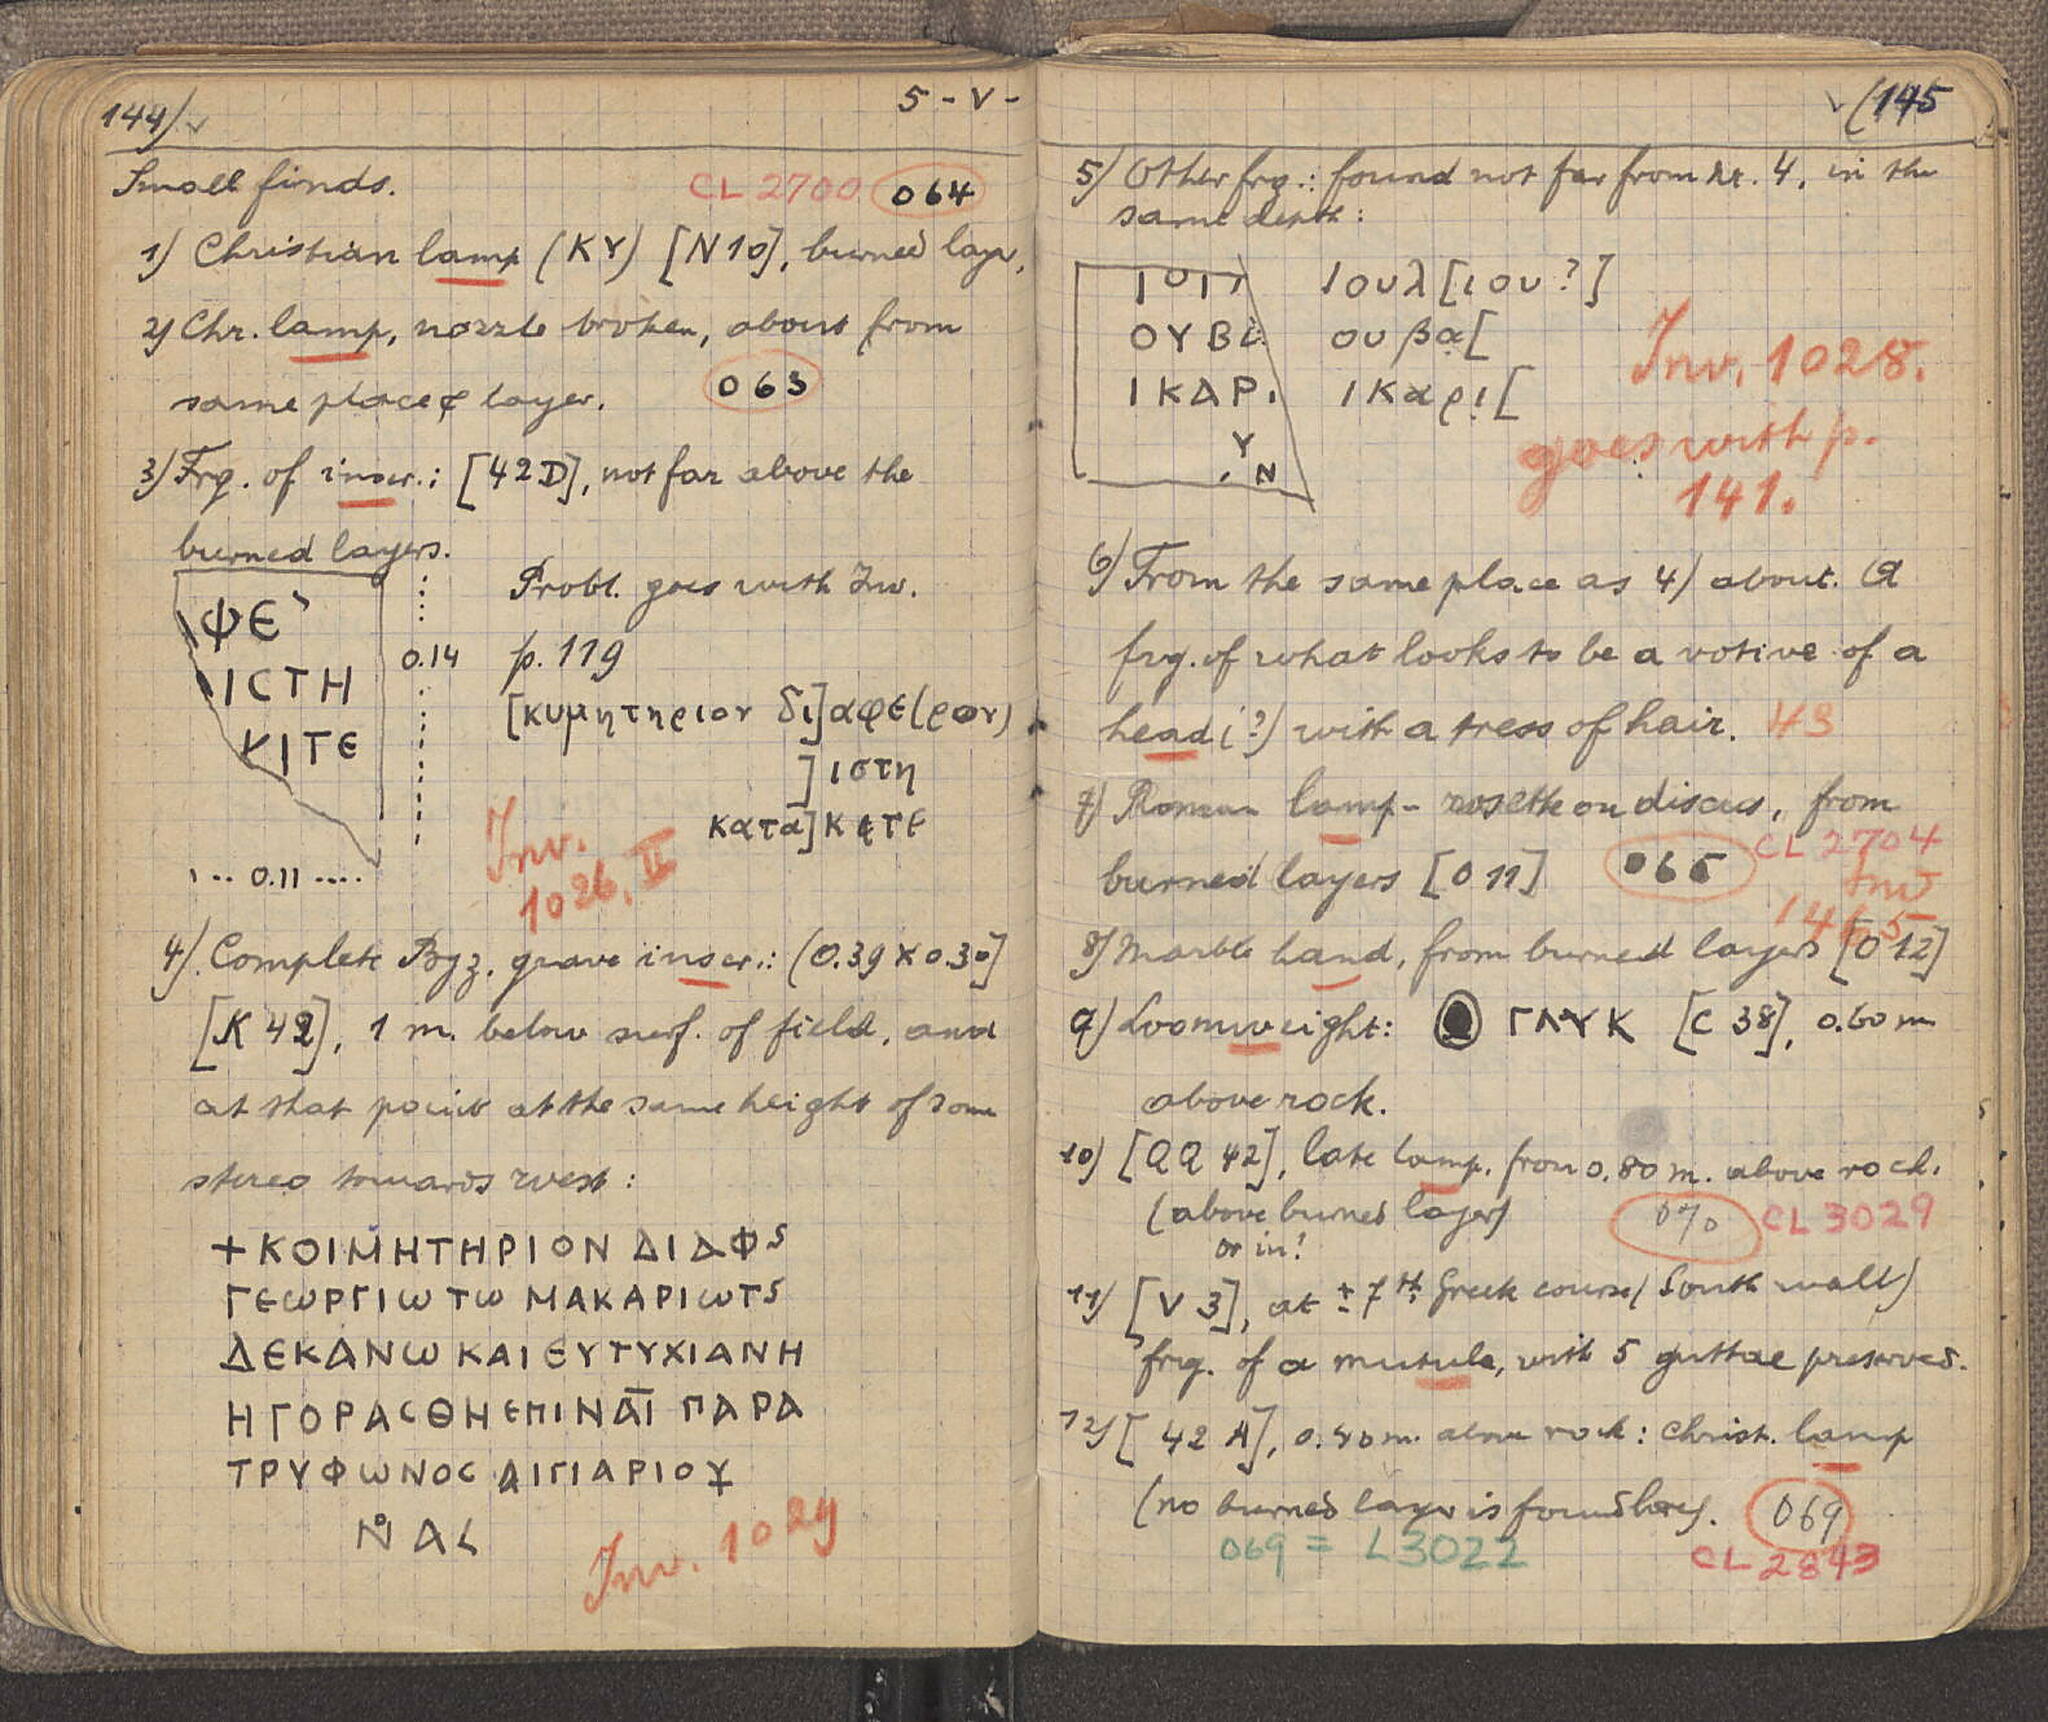 144)
5 - V -
Small finds.
CL 2700 064
1) Christian lamp (KY) [N 10], burned layer,
2) Chr. lamp, nozzle broken, about from
same place & layer. 063
3) Frg. of inscr.: [42D], not far above the
burned layers.
ΦΕ`
ΙCΤΗ
ΚΙΤΕ
0.14
... 0.11 ....
Probl. goes with Inv.
p. 119
[κυμητηριον δι]αφε(ρον)
]ιστη
κατα]κιτε
Inv.
1026, II
4). Complete Byz. grave inscr.: (0.39 x 0.30]
[K 42], 1 m. below surf. of field, and
at that point at the same height of some
stereo towards west:
+ ΚΟΙΜΗΤΗΡΙΟΝ ΔΙΑΦS
ΓΕωΡΓΙω Τω ΜΑΚΑΡΙωΤS
ΔΕΚΑΝω ΚΑΙ ΕΥΤΥΧΙΑΝΗ
ΗΓΟΡΑCΘΗ ΕΠΙ ΝΑΪ ΠΑΡΑ
ΤΡΥΦωΝΟC ΑΙΓΙΑΡΙΟΥ
Inv. 1029
(145
5) Other frg.: found not far from nr. 4, in the
same depth:
ΙΟΥΛ Ιουλ[ιου?]
ΟΥΒΑ ουβα[
ΙΚΑΡΙ Ικαρι[
Υ
. Ν
Inv. 1028.
goes with p.
141.
6) From the same place as 4) about. A
frg. of what looks to be a votive of a
head (?) with a tress of hair. H3
7) Roman lamp - rosette on discus, from
burned layers [O 11] 065 CL 2704
Inv
1465
8) Marble hand, from burned layers [O 12]
9) Loomweight: ΓΛΥΚ [C 38], 0.60 m
above rock.
10) [QQ 42], late lamp, from 0.80 m. above rock.
(above burned layer) 070 CL 3029
or in!
11) [V 3], at ± 7th Greek course (South wall)
frg. of a mutule, with 5 guttae preserved.
12) [42 A], 0.40 m. above rock: Christ. lamp
(no burned layer is found here). 069
069 = L3022 CL 2843